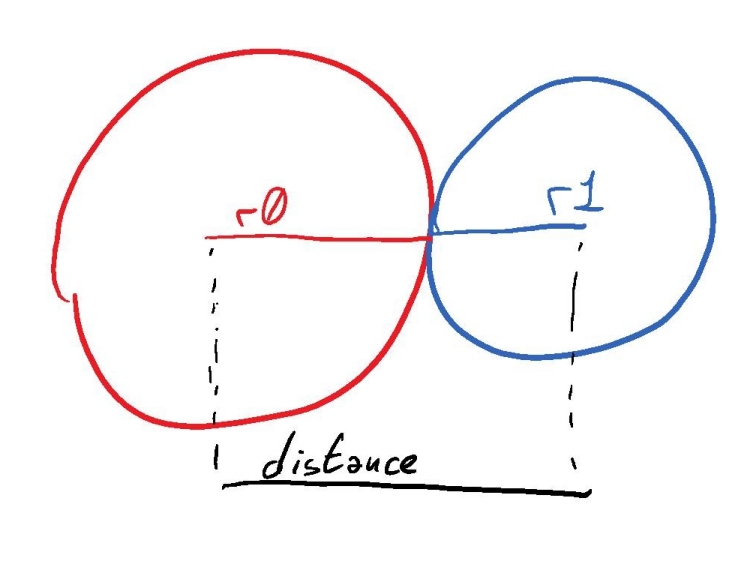 r0
r1
distance